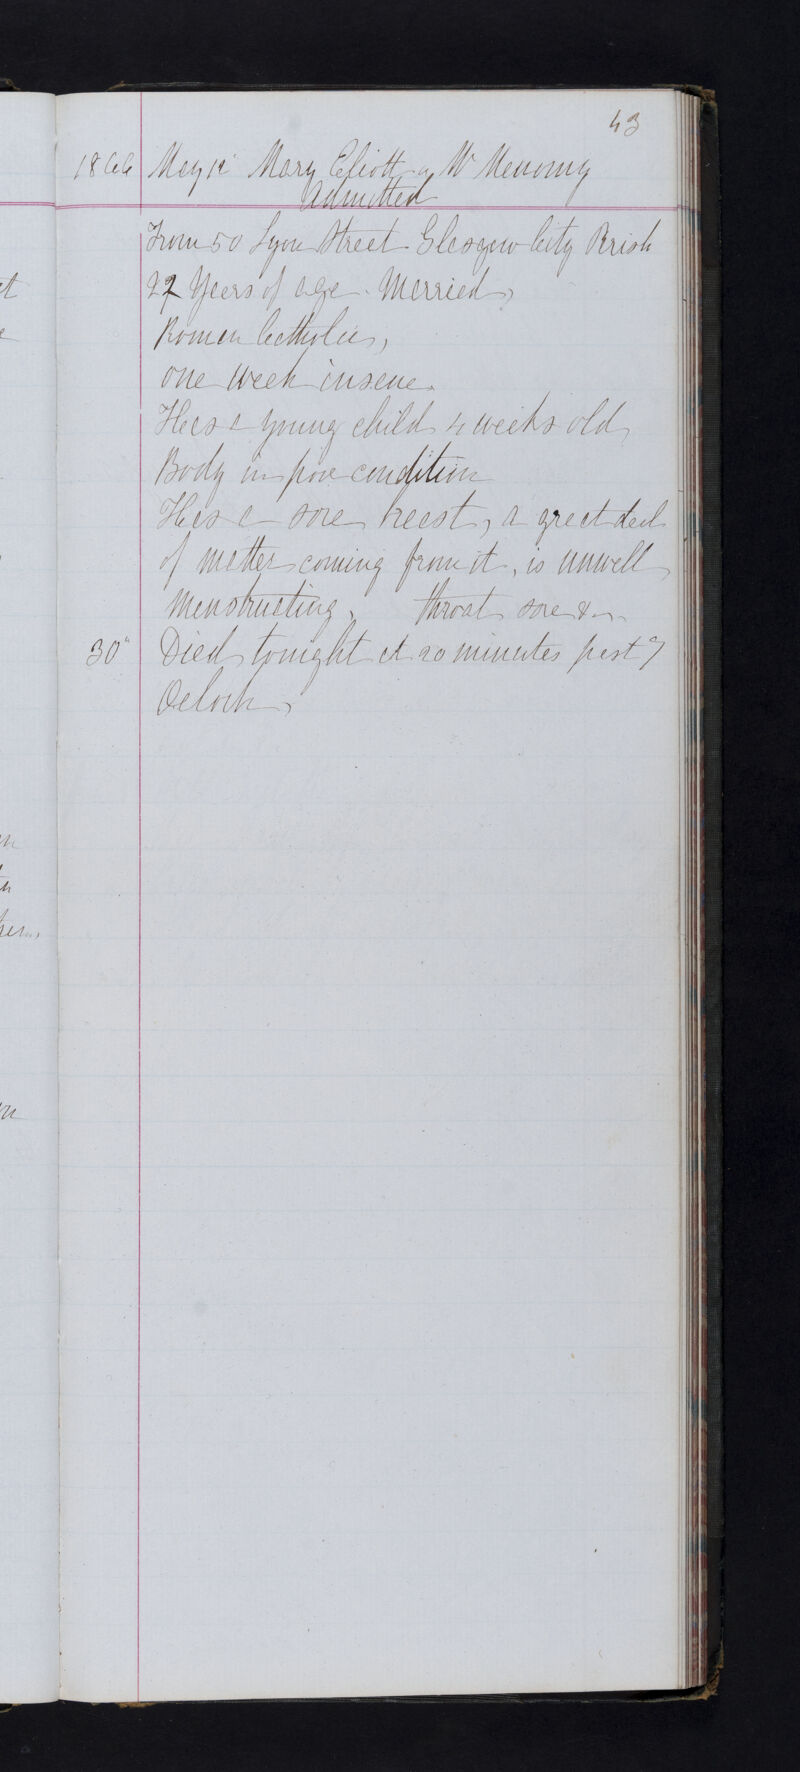 43
1866 May 12" Mary Eliott or Mc Menomy
Admitted
From 50 Lyon Street Glasgow City Parish
27 Years of age. Married,
Roman Catholic,
one week insane.
Has a young child 4 weeks old,
Body in poor condition
Has a sore breast, a great deal
of matter coming from it, is unwell
Menstruating, throat sore &c
30" Died tonight at 20 minutes past 7
Oclock,